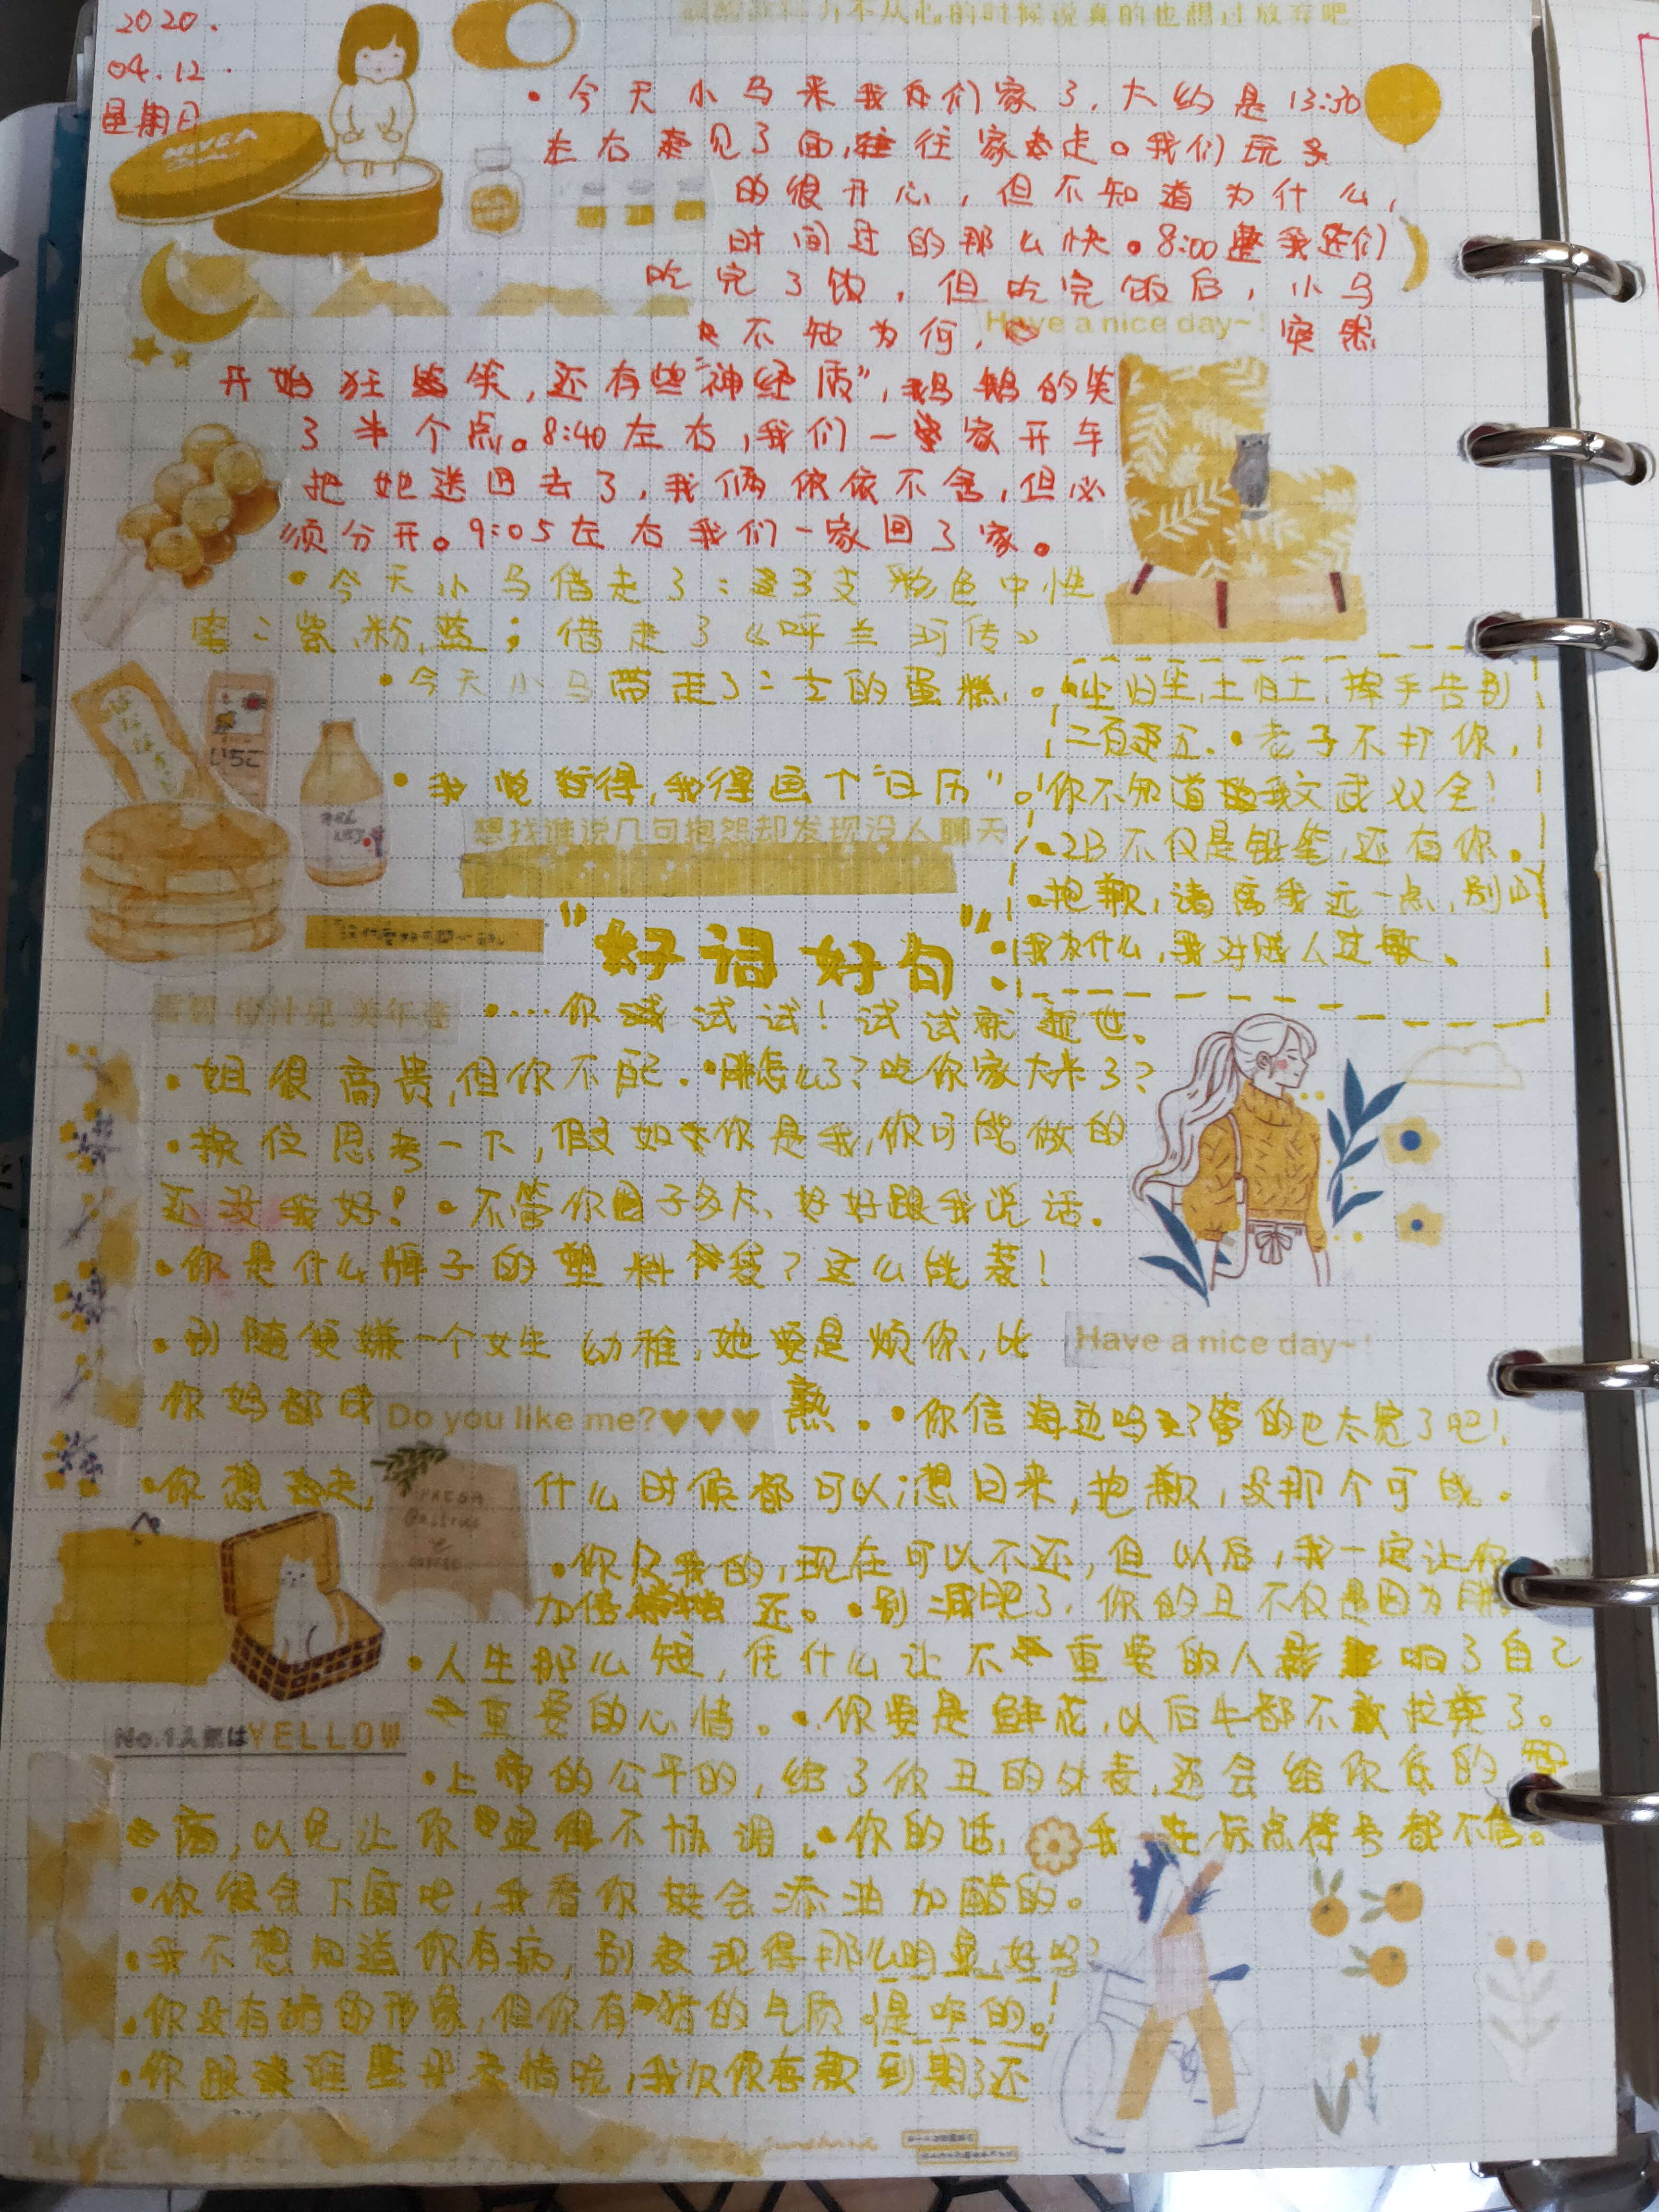 2020.
04.12
星期日
NIVEA
力不从心的时候说真的也想过放弃吧
• 今天小马来我们家了,大约是13:30
左右见了面,往家走。我们玩
的很开心,但不知道为什么,
时间过的那么快。8:00整我们
吃完了饭,但吃完饭后,小马
不知为何, 突然
Have a nice day~!
开始狂笑,还有些“神经质”,鹅鹅的笑
了半个点。8:40左右,我们一家开车
把她送回去了,我俩依依不舍,但必
须分开。9:05左右我们一家回了家。
• 今天小马借走了:3支彩色中性
笔:紫、粉、蓝;借走了《呼兰河传》
• 今天小马带走了:士的蛋糕。
• 尘归尘,土归土,挥手告别
二百五。• 老子不打你,
你不知道我文武双全!
• 2B不仅是铅笔,还有你。
• 抱歉,请离我远一点,别问
我为什么,我对贱人过敏。
いちご
• 我觉得,我得画个“日历”。
想找谁说几句抱怨却发现没人聊天
“好词好句”:
•…你试试!试试就逝世。
• 姐很高贵,但你不配. • 胖怎么了?吃你家大米了?
• 换位思考一下,假如你是我,你可能做的
还没我好! • 不管你圈子多大、好好跟我说话.
• 你是什么牌子的塑料袋?这么能装!
• 别随便嫌一个女生幼稚,她要是烦你,比
Have a nice day~!
你妈都成 熟。• 你信海边吗?管的也太宽了吧!
Do you like me?♥♥♥
• 你想走, 什么时候都可以;想回来,抱歉,没那个可能。
• 你欠我的,现在可以不还,但以后,我一定让你
加倍还。• 别减肥了,你的丑不仅是因为胖
• 人生那么短,凭什么让不重要的人影响了自己
重要的心情。• 你要是鲜花,以后牛都不敢拉粪了。
No.1人気はYELLOW
• 上帝的公平的,给了你丑的外表,还会给你低的智
商,以免让你显得不协调。• 你的话, 我 连标点符号都不信。
• 你很会下厨吧,我看你挺会添油加醋的。
• 我不想知道你有病,别表现得那么明显,好吗?
• 你没有猪的形象,但你有猪的气质 是咋的。!
• 你跟谁整那老情呢,我欠你存款到期了还